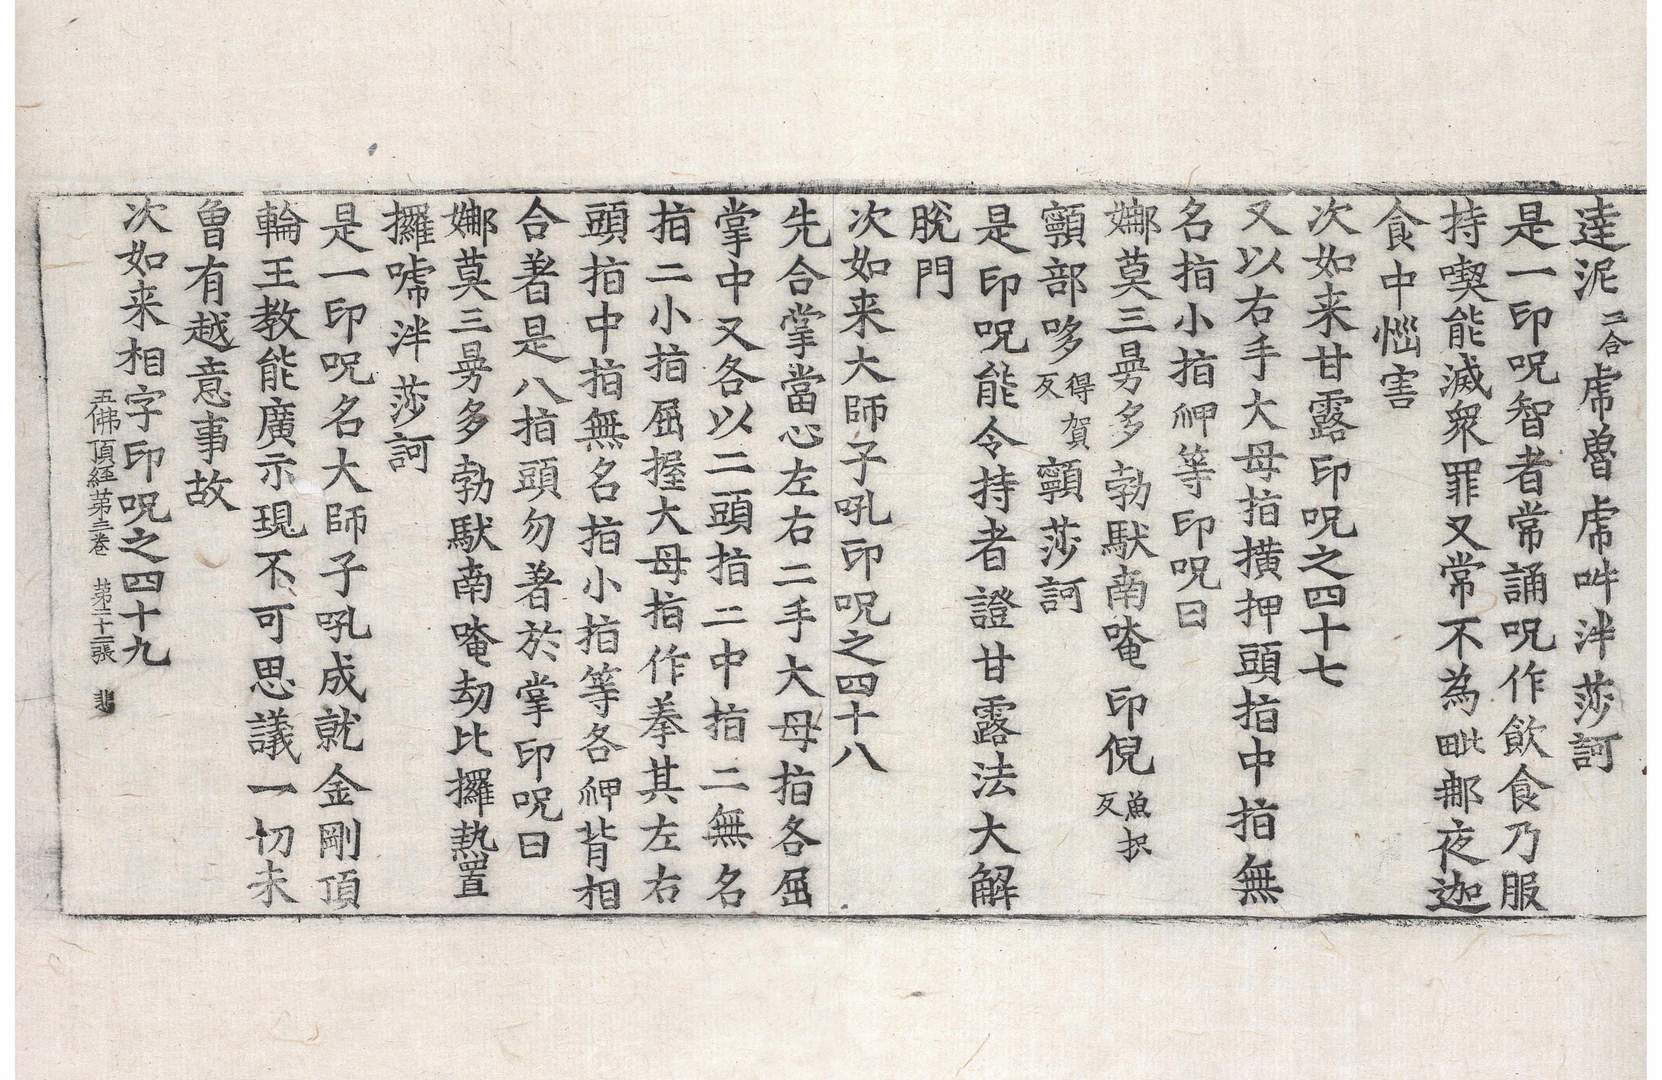 達泥二合虎嚕虎吽泮莎訶
是一印呪智者常誦呪作飲食乃服
持喫能滅衆罪又常不為毗那夜迦
食中惱害
次如来甘露印呪之四十七
又以右手大母指横押頭指中指無
名指小指㧞等印呪曰
娜莫三曼多勃馱南唵印倪魚枳反
顐部哆得賀反顐莎訶
是印呪能令持者證甘露法大解
脫門
次如来大師子吼印呪之四十八
先合掌當心左右二手大母指各屈
掌中又各以二頭指二中指二無名
指二小指屈握大母指作拳其左右
頭指中指無名指小指等各背相
合著是八指頭勿著於掌印呪曰
娜莫三曼多勃馱南唵劫比攞熱置
攞嘑泮莎訶
是一印呪名大師子吼成就金剛頂
輪王教能廣示現不可思議一切未
曾有越意事故
次如来相字印呪之四十九
五佛頂経第三巻 第十二張 悲